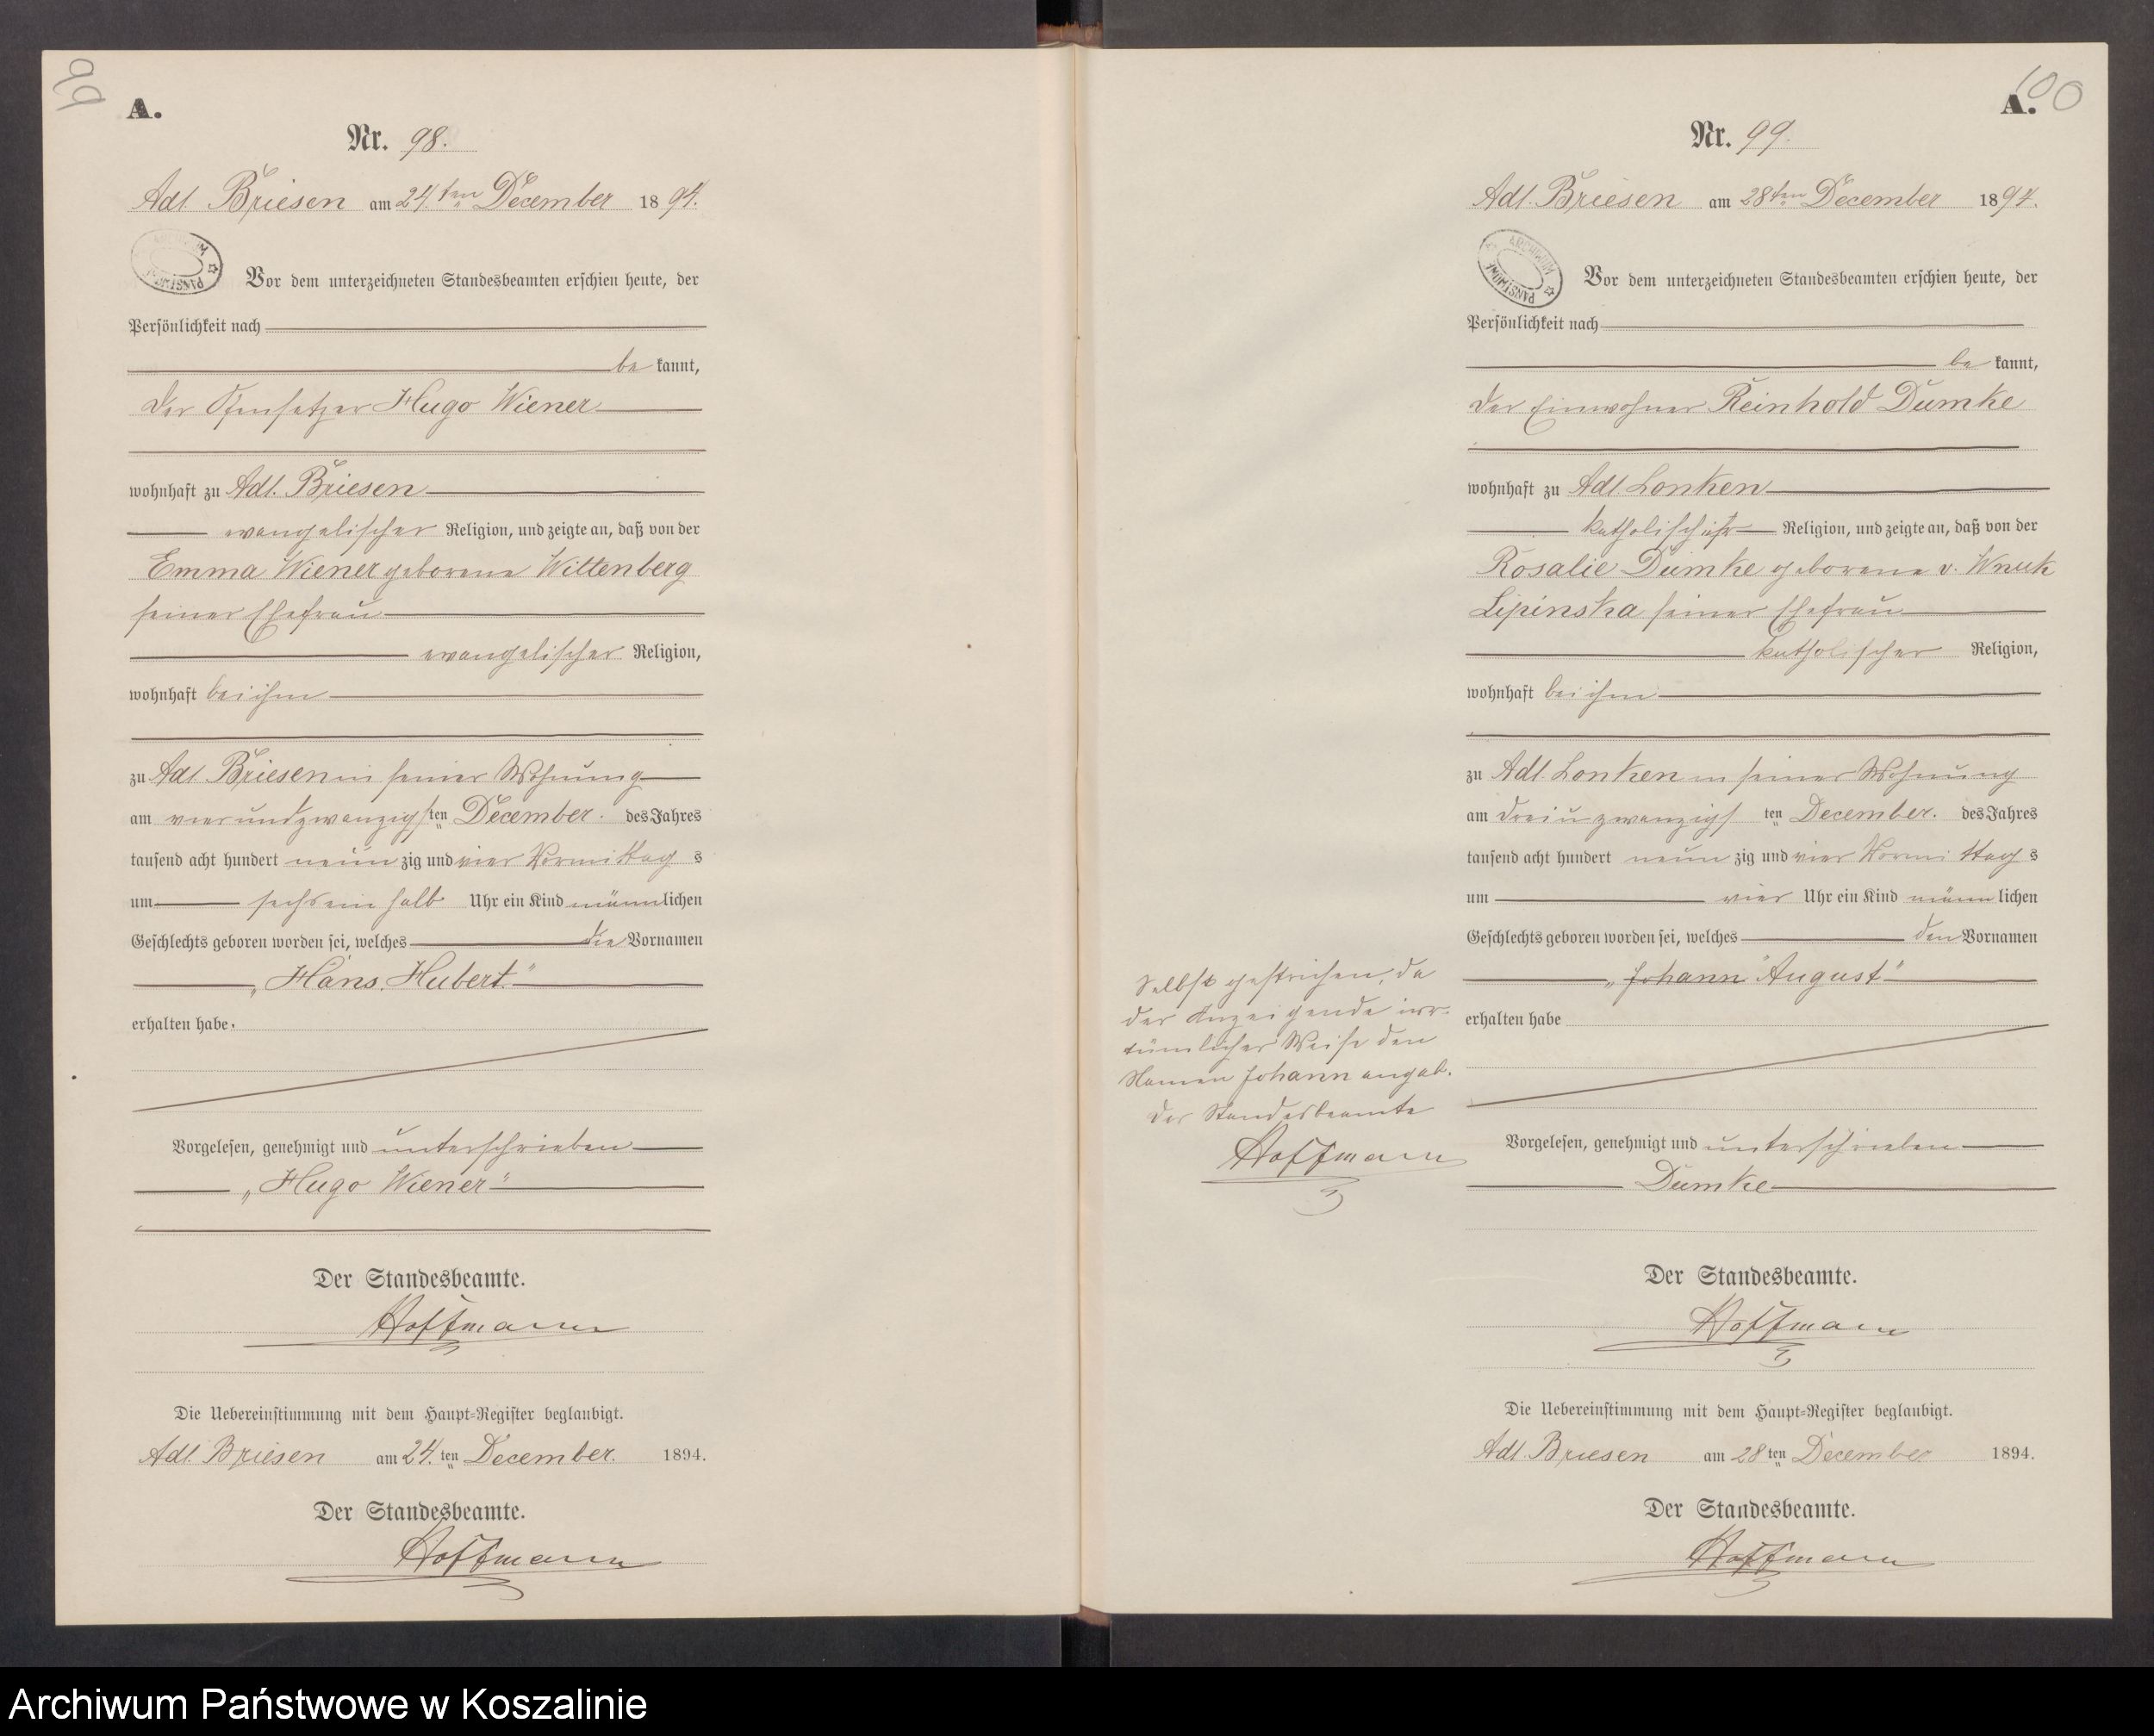 99
A.
Nr. 98.
Adl. Briesen am 24ten December 1894.
ARCHIWUM PAŃSTWOWE
Vor dem unterzeichneten Standesbeamten erschien heute, der
Persönlichkeit nach
be kannt,
der Ofensetzer Hugo Wiener
wohnhaft zu Adl. Briesen
evangelischer Religion, und zeigte an, daß von der
Emma Wiener geborene Wittenberg
seiner Ehefrau
evangelischer Religion,
wohnhaft bei ihm
zu Adl. Briesen in seiner Wohnung
am vierundzwanzigsten December. des Jahres
tausend acht hundert neunzig und vier Vormittags
um sechseinhalb Uhr ein Kind männlichen
Geschlechts geboren worden sei, welches die Vornamen
„Hans Hubert"
erhalten habe.
Vorgelesen, genehmigt und unterschrieben
„Hugo Wiener"
Der Standesbeamte.
Hoffmann
Die Uebereinstimmung mit dem Haupt-Register beglaubigt.
Adl. Briesen am 24.ten December. 1894.
Der Standesbeamte.
Hoffmann
100
A.
Nr. 99.
Adl. Briesen am 28ten December 1894.
ARCHIWUM PAŃSTWOWE
Vor dem unterzeichneten Standesbeamten erschien heute, der
Persönlichkeit nach
be kannt,
der Einwohner Reinhold Dumke
wohnhaft zu Adl. Lonken
katholischer Religion, und zeigte an, daß von der
Rosalie Dumke geborene v. Wnuk
Lipinska seiner Ehefrau
katholischer Religion,
wohnhaft bei ihm
zu Adl. Lonken in seiner Wohnung
am dreiuzwanzigsten December. des Jahres
tausend acht hundert neunzig und vier Vormittags
um vier Uhr ein Kind männlichen
Geschlechts geboren worden sei, welches den Vornamen
„Johann" August"
erhalten habe
Selbst gestrichen, da
der Anzeigende irr-
tümlicher Weise den
Namen Johann angab.
Der Standesbeamte
Hoffmann
Vorgelesen, genehmigt und unterschrieben
Dumke
Der Standesbeamte.
Hoffmann
Die Uebereinstimmung mit dem Haupt-Register beglaubigt.
Adl. Briesen am 28ten December 1894.
Der Standesbeamte.
Hoffmann
Archiwum Państwowe w Koszalinie